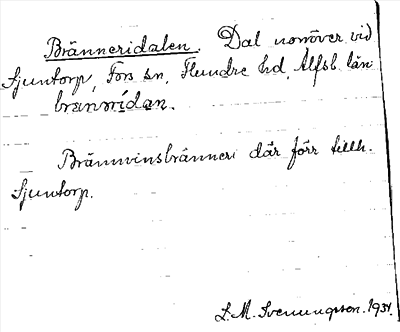 Bränneridalen. Dal norröver vid
Sjuntorp, Fors sn, Flundre hd, Älfsb. län
brannridan.
Brännvinsbränneri där förr tillh.
Sjuntorp.
L. M. Svenungsson. 1931.